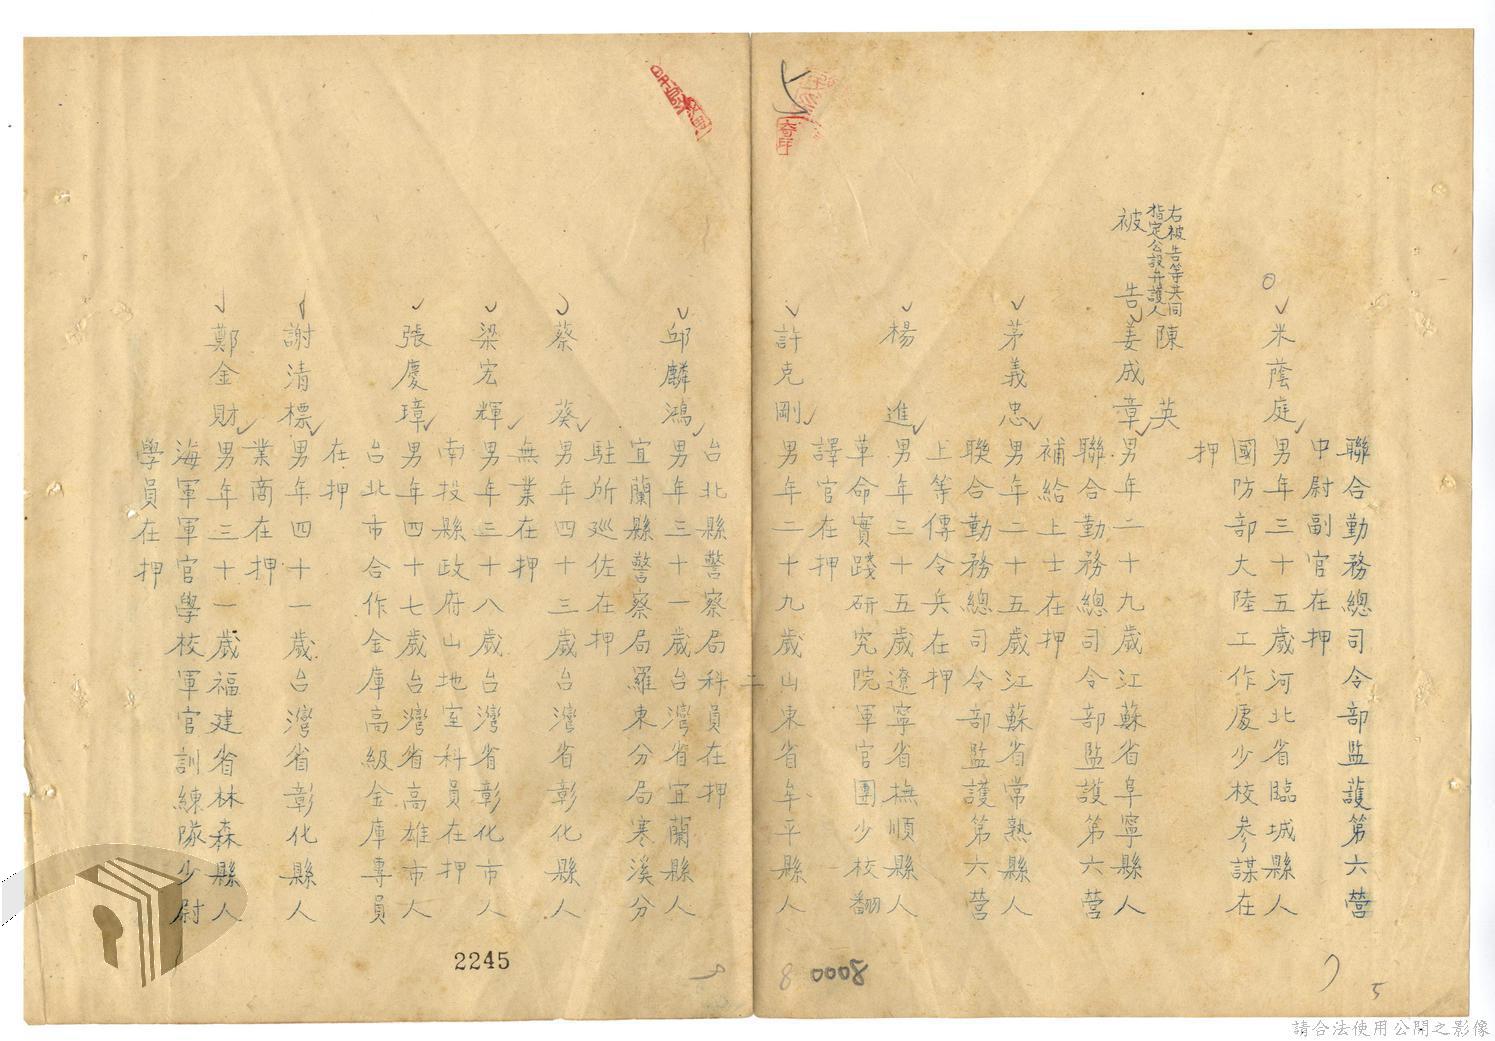 聯合勤務總司令部監護第六營
中尉副官在押
米蔭庭男年三十五歲河北省臨城縣人
國防部大陸工作處少校參謀在
押
右被告等共同
指定公設弁護人 陳英
被告姜成章男年二十九歲江蘇省阜寧縣人
聯合勤務總司令部監護第六營
補給上士在押
茅義忠男年二十五歲江蘇省常熟縣人
聯合勤務總司令部監護第六營
上等傳令兵在押
楊進男年三十五歲遼寧省撫順縣人
革命實踐研究院軍官團少校翻
譯官在押
許克剛男年二十九歲山東省牟平縣人
二
台北縣警察局科員在押
邱麟鴻男年三十一歲台灣省宜蘭縣人
宜蘭縣警察局羅東分局寒溪分
駐所巡佐在押
蔡葵男年四十三歲台灣省彰化縣人
無業在押
梁宏輝男年三十八歲台灣省彰化市人
南投縣政府山地室科員在押
張慶璋男年四十七歲台灣省高雄市人
台北市合作金庫高級金庫專員
在押
謝清標男年四十一歲台灣省彰化縣人
業商在押
鄭金財男年三十一歲福建省林森縣人
海軍軍官學校軍官訓練隊少尉
學員在押
5
8 0008
9
2245
請合法使用公開之影像